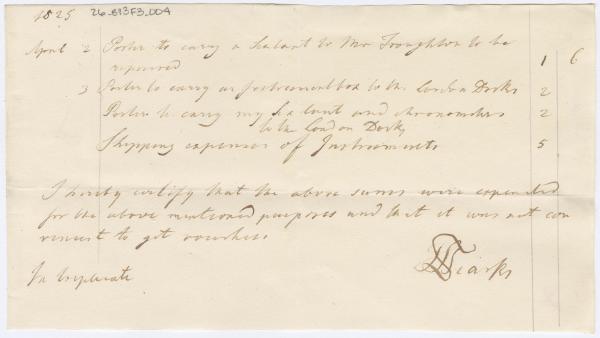 1825 26-S13F3-004
April 2 Porter to carry a Sextant to Mr Troughton to be
repaired 1 6
3 Porter to carry an Instrument box to the London Docks 2
Porter to carry my Sextant and chronometers 2
to the London Docks
Shipping expenses of Instruments 5
I hereby certify that the above sums were expended
for the above mentioned purposes and that it was not con
venient to get vouchers
In triplicate
Tiarks